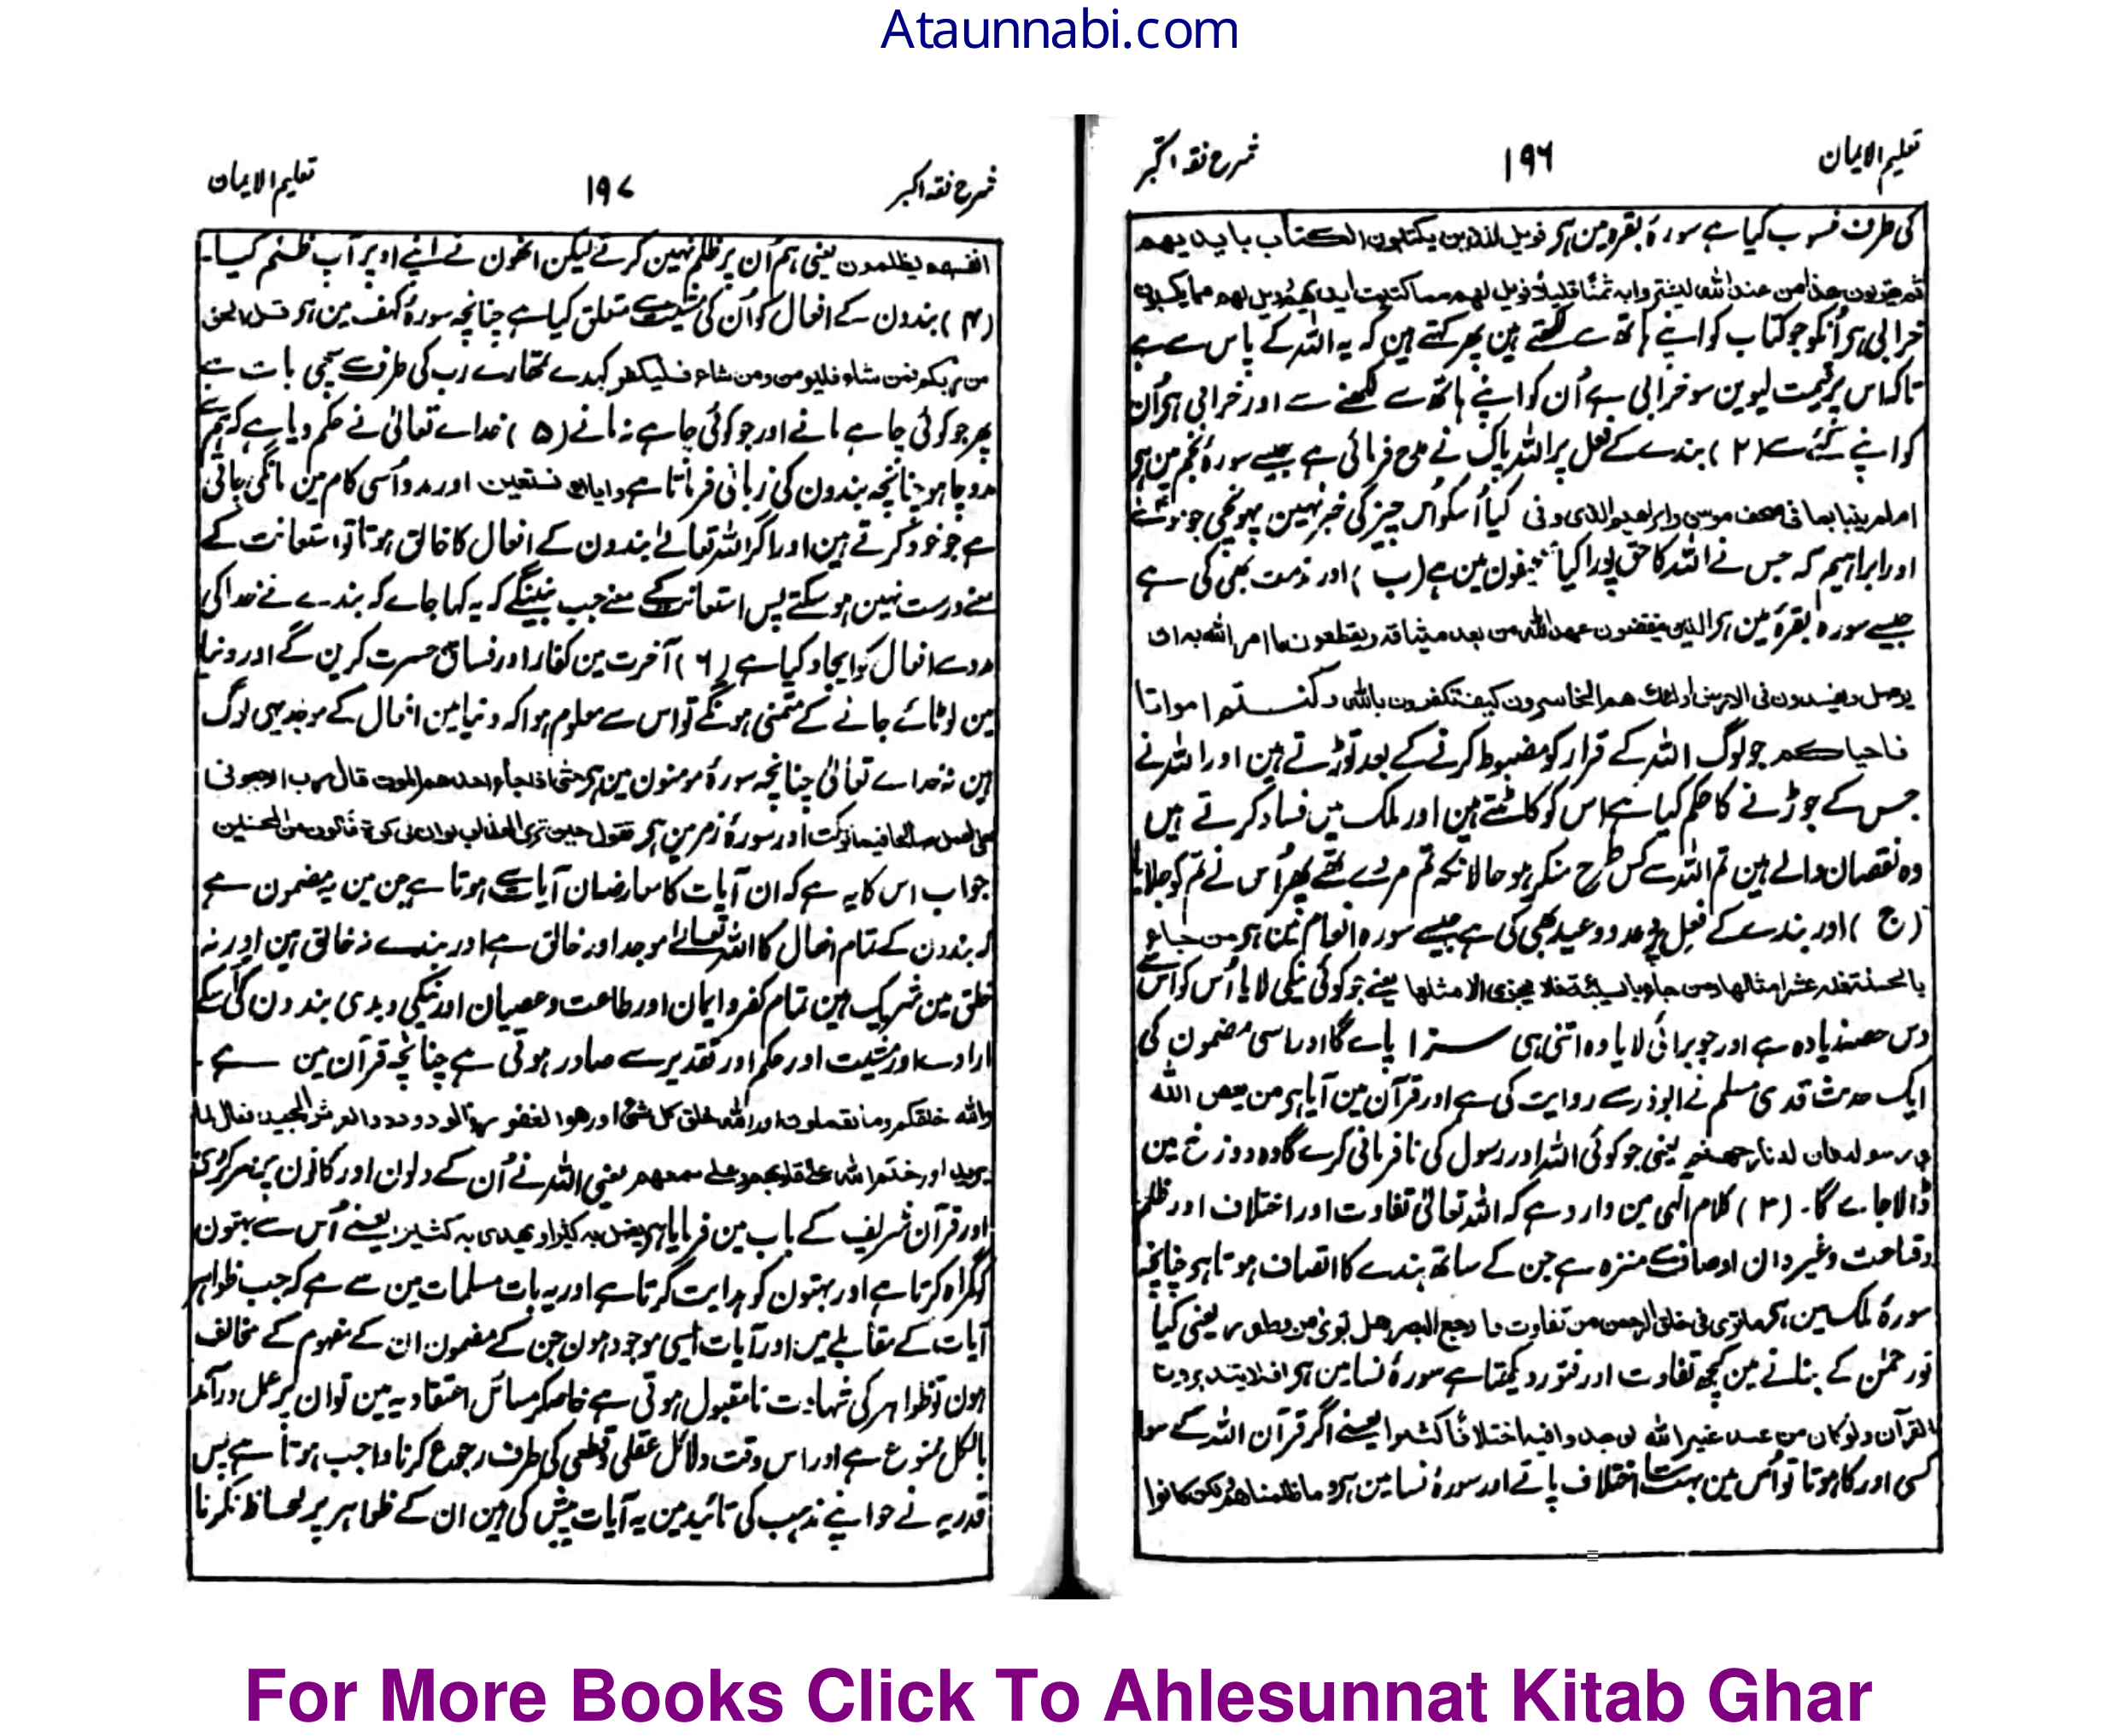 Ataunnabi.com
تعلیم الایمان
۱۹۶
شرح فقہ اکبر
کی طرف منسوب کیا ہے سورۂ بقرہ مین ہر فویل للذین یکتبون الکتاب بایدیهم
ثم یقولون هذا من عند الله لیشتروا به ثمنا قلیلا فویل لهم مما کتبت ایدیهم وویل لهم مما یکسبون
خرابی ہر اُنکو جو کتاب کو اپنے ہاتھ سے لکھتے ہین پھر کہتے ہین کہ یہ اللہ کے پاس سے ہے
تاکہ اس پر قیمت لیوین سو خرابی ہے اُن کو اپنے ہاتھ سے لکھنے سے اور خرابی ہر اُن
کو اپنے کئے سے (۲) بندے کے فعل پر اللہ پاک نے مدح فرمائی ہے جیسے سورۂ نجم مین ہر
ام لم ینبا بما فی صحف موسی وابراهیم الذی وفی کیا اُسکو اُس چیز کی خبر نہین پہونچی جو موسٰے
اور ابراہیم کہ جس نے اللہ کا حق پورا کیا صحیفون مین ہے (ب) اور مذمت بھی کی ہے
جیسے سورہ بقرہ مین ہر الذین ینقضون عهد الله من بعد میثاقه ویقطعون ما امر الله به ان
یوصل ویفسدون فی الارض اولئك هم الخاسرون کیف تکفرون بالله وکنتم امواتا
فاحیاکم جو لوگ اللہ کے قرار کو مضبوط کرنے کے بعد توڑتے ہین اور اللہ نے
جس کے جوڑنے کا حکم کیا ہے اس کو کاٹتے ہین اور ملک میں فساد کرتے ہیں
وہ نقصان والے ہین تم اللہ سے کس طرح منکر ہو حالانکہ تم مردے تھے پھر اُس نے تم کو جلایا
(ج) اور بندے کے فعل پر وعدہ و وعید بھی کی ہے جیسے سورہ انعام مین ہر من جاء
بالحسنة فله عشر امثالها ومن جاء بالسیئة فلا یجزی الا مثلها یعنے جو کوئی نیکی لایا اُس کو اُس سے
دس حصہ زیادہ ہے اور جو برائی لایا وہ اتنی ہی سزا پاے گا اور اسی مضمون کی
ایک حدیث قدسی مسلم نے ابوذر سے روایت کی ہے اور قرآن مین آیا ہر من یعص الله
ورسوله فان له نار جهنم یعنی جو کوئی اللہ اور رسول کی نافرمانی کرے گا وہ دوزخ مین
ڈالا جاے گا۔ (۳) کلام الٰہی مین وارد ہے کہ اللہ تعالیٰ تفاوت اور اختلاف اور ظلم
وقباحت وغیرہ ان اوصاف سے منزہ ہے جن کے ساتھ بندے کا اتصاف ہوتا ہر چنانچہ
سورۂ ملک مین ہر ما تری فی خلق الرحمن من تفاوت فا رجع البصر هل تری من فطور یعنی کیا
تو رحمٰن کے بنانے مین کچھ تفاوت اور فتور دیکھتا ہے سورۂ نسا مین ہر افلا یتدبرون
القرآن ولو کان من عند غیر الله لوجدوا فیه اختلافا کثیرا یعنے اگر قرآن اللہ کے سوا
کسی اور کا ہوتا تو اُس مین بہت سا اختلاف پاتے اور سورۂ نسا مین ہر وما ظلمناهم ولکن کانوا
شرح فقہ اکبر
۱۹۷
تعلیم الایمان
انفسهم یظلمون یعنی ہم اُن پر ظلم نہین کرتے لیکن انھون نے اپنے اوپر آپ ظلم کیا۔
(۴) بندون کے افعال کو اُن کی مشیت سے متعلق کیا ہے چنانچہ سورۂ کہف مین ہر قل الحق
من ربکم فمن شاء فلیومن ومن شاء فلیکفر کہدے تمھارے رب کی طرف سے سچی بات ہے
پھر جو کوئی چاہے مانے اور جو کوئی چاہے نہ مانے (۵) خداے تعالیٰ نے حکم دیا ہے کہ ہم سے
مدد چاہو چنانچہ بندون کی زبانی فرماتا ہے وایاك نستعین اور مدد اُسی کام مین مانگی جاتی
ہے جو خود کرتے ہین اور اگر اللہ تعالےٰ بندون کے افعال کا خالق ہوتا تو استعانت کے
معنے درست نہین ہو سکتے پس استعانت کے معنے جب بنینگے کہ یہ کہا جاے کہ بندے نے خدا کی
مدد سے افعال کو ایجاد کیا ہے (۶) آخرت مین کفار اور فساق حسرت کرین گے اور دنیا
مین لوٹائے جانے کے متمنی ہونگے تو اس سے معلوم ہوا کہ دنیا مین افعال کے موجد یہی لوگ
ہین نہ خداے تعالیٰ چنانچہ سورۂ مومنون مین ہر حتی اذا جاء احدهم الموت قال رب ارجعونی
لعلی اعمل صالحا فیما ترکت اور سورۂ زمر مین ہر تقول حین تری العذاب لو ان لی کرة فاکون من المحسنین
جواب اس کا یہ ہے کہ ان آیات کا معارضہ ان آیات سے ہوتا ہے جن مین یہ مضمون ہے
کہ بندون کے تمام افعال کا اللہ تعالےٰ موجد اور خالق ہے اور بندے نہ خالق ہین اور نہ
خلق مین شریک ہین تمام کفر و ایمان اور طاعت و عصیان اور نیکی و بدی بندون کی اُسی کے
ارادے اور مشیت اور حکم اور تقدیر سے صادر ہوتی ہے چنانچہ قرآن مین ہے۔
والله خلقکم وما تعملون اور الله خلق کل شئ اور هو الغفور الودود ذو العرش المجید فعال لما
یرید اور ختم الله علی قلوبهم وعلی سمعهم یعنی اللہ نے اُن کے دلون اور کانون پر مہر کر دی
اور قرآن شریف کے باب مین فرمایا ہر یضل به کثیرا ویهدی به کثیرا یعنے اُس سے بہتون
کو گمراہ کرتا ہے اور بہتون کو ہدایت کرتا ہے اور یہ بات مسلمات مین سے ہے کہ جب ظواہر
آیات کے مقابلے میں اور آیات ایسی موجود ہون جن کے مضمون ان کے مفہوم کے مخالف
ہون تو ظواہر کی شہادت نامقبول ہوتی ہے خاصکر مسائل اعتقادیہ مین تو ان پر عمل درآمد
بالکل ممنوع ہے اور اس وقت دلائل عقلی و قطعی کی طرف رجوع کرنا واجب ہوتا ہے پس
قدریہ نے جو اپنے مذہب کی تائید مین یہ آیات پیش کی ہین ان کے ظواہر پر لحاظ نکرنا
For More Books Click To Ahlesunnat Kitab Ghar